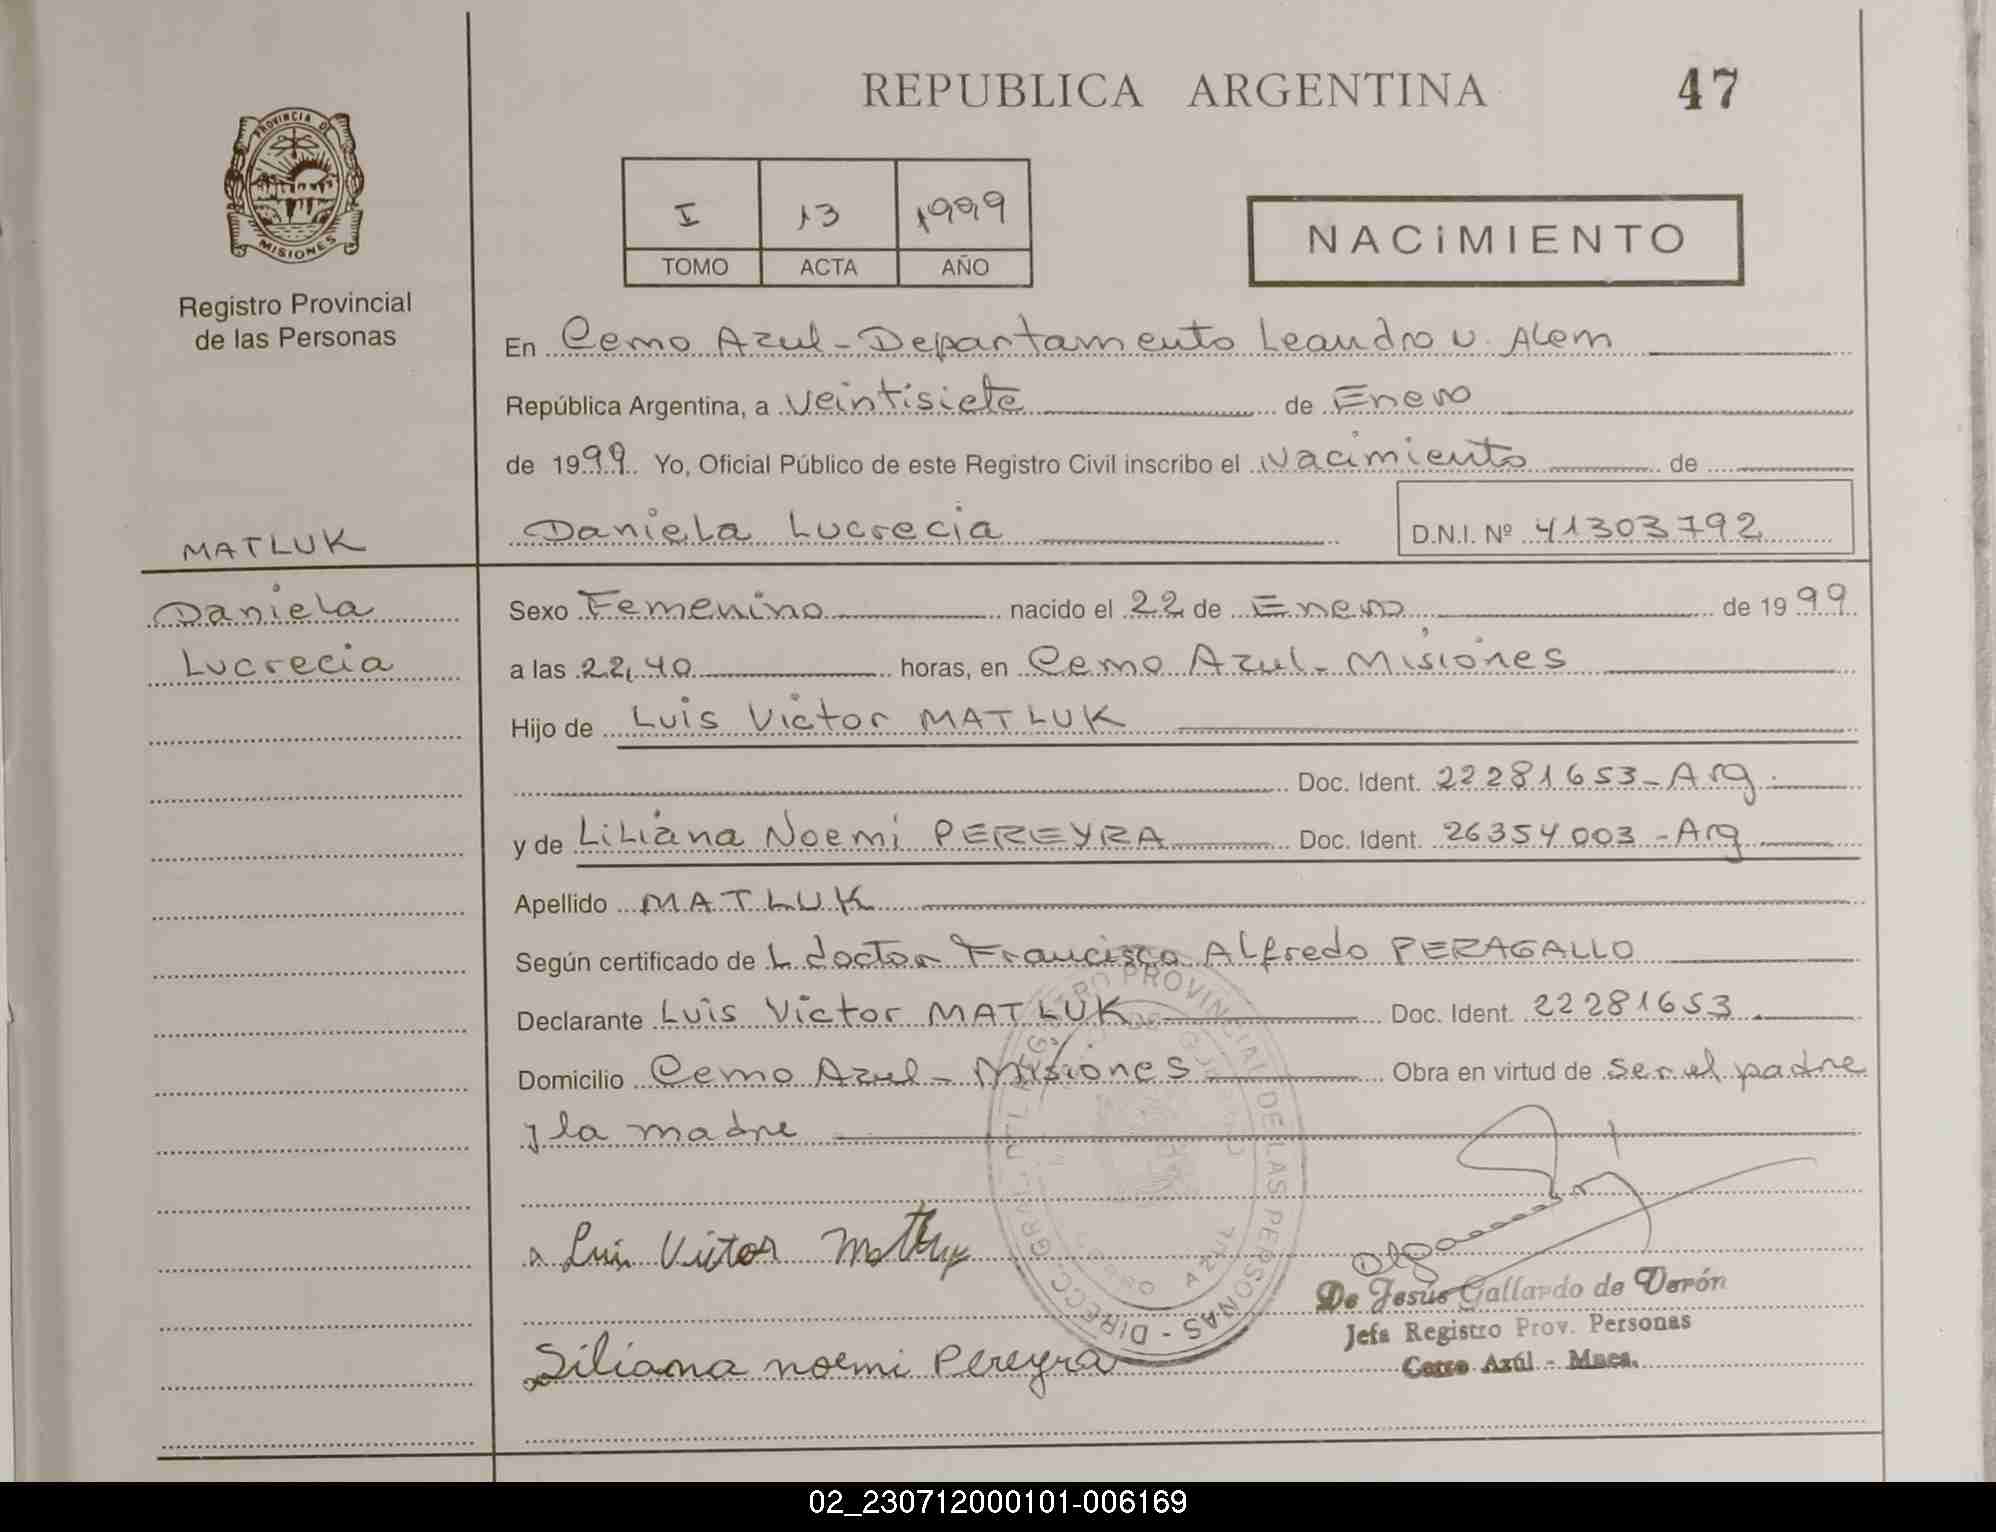 REPUBLICA ARGENTINA
47
PROVINCIA DE
MISIONES
Registro Provincial
de las Personas
I 13 1999
TOMO ACTA AÑO
NACiMIENTO
En Cerro Azul - Departamento Leandro N. Alem
República Argentina, a veintisiete de Enero
de 1999 Yo, Oficial Público de este Registro Civil inscribo el Nacimiento de
MATLUK
Daniela Lucrecia
D.N.I. Nº 41303792
Daniela
Lucrecia
Sexo Femenino nacido el 22 de Enero de 1999
a las 22,40 horas, en Cerro Azul - Misiones
Hijo de Luis Victor MATLUK
Doc. Ident. 22281653 - Arg.
y de Liliana Noemi PEREYRA Doc. Ident. 26354003 - Arg
Apellido MATLUK
Según certificado de L doctor Francisco Alfredo PERAGALLO
Declarante Luis Victor MATLUK Doc. Ident. 22281653
Domicilio Cerro Azul - Misiones Obra en virtud de ser el padre
y la madre
Luis Victor
Liliana noemi Pereyra
DIRECC. GRAL. REGISTRO PROVINCIAL DE LAS PERSONAS -
CERRO AZUL
Olga
De Jesús Gallardo de Verón
Jefa Registro Prov. Personas
Cerro Azúl - Mnes.
02_230712000101-006169